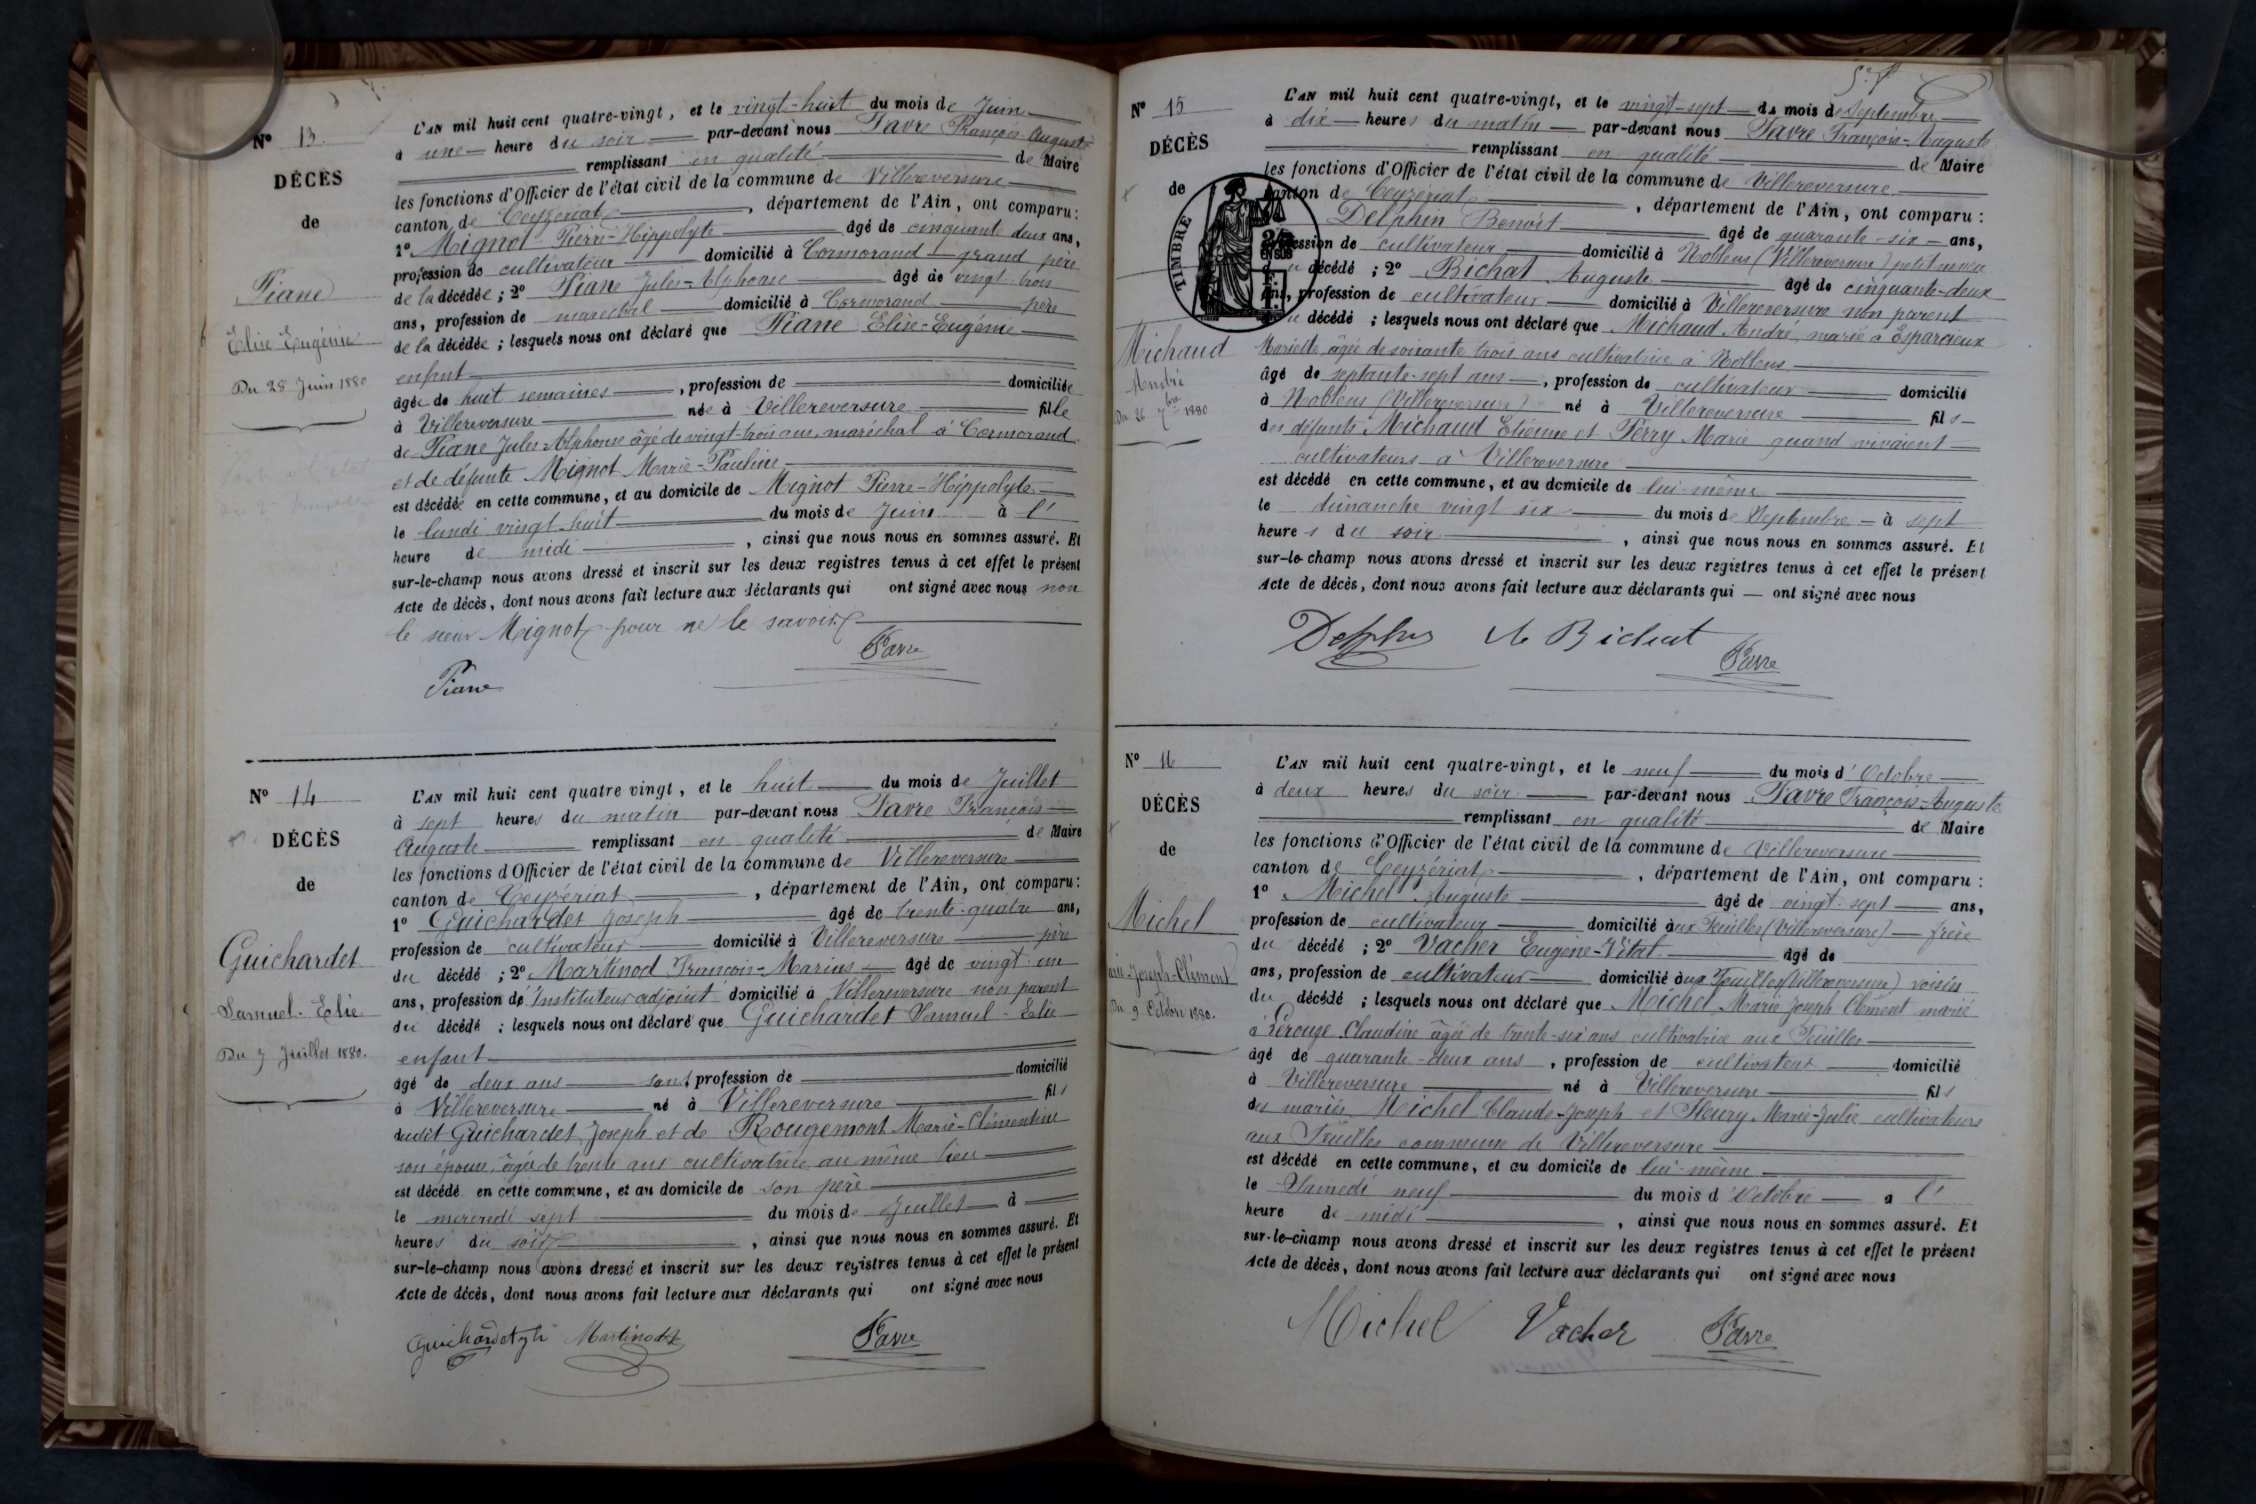 Nº 13.
DÉCÈS
de
Piane
Elise-Eugénie
Du 28 Juin 1880
L'AN mil huit cent quatre-vingt, et le vingt-huit du mois de Juin
à une heure du soir par-devant nous Favre François-Auguste
remplissant en qualité de Maire
les fonctions d'Officier de l'état civil de la commune de Villereversure
canton de Ceyzériat, département de l'Ain, ont comparu:
1º Mignot Pierre-Hippolyte âgé de cinquante deux ans,
profession de cultivateur domicilié à Cormorand grand père
de la décédée; 2º Piane Jules-Alphonse âgé de vingt-trois
ans, profession de maréchal domicilié à Cormorand père
de la décédée; lesquels nous ont déclaré que Piane Elise-Eugénie
enfant
âgée de huit semaines, profession de domiciliée
à Villereversure née à Villereversure fille
de Piane Jules-Alphonse âgé de vingt-trois ans, maréchal à Cormorand
et de défunte Mignot Marie-Pauline
est décédée en cette commune, et au domicile de Mignot Pierre-Hippolyte
le lundi vingt huit du mois de Juin à l'
heure de midi, ainsi que nous nous en sommes assuré. Et
sur-le-champ nous avons dressé et inscrit sur les deux registres tenus à cet effet le présent
Acte de décès, dont nous avons fait lecture aux déclarants qui ont signé avec nous non
le sieur Mignot pour ne le savoir
Favre
Piane
Nº 14
DÉCÈS
de
Guichardet
Samuel-Elie
Du 7 Juillet 1880.
L'AN mil huit cent quatre vingt, et le huit du mois de Juillet
à sept heures du matin par-devant nous Favre François
Auguste remplissant en qualité de Maire
les fonctions d'Officier de l'état civil de la commune de Villereversure
canton de Ceyzériat, département de l'Ain, ont comparu:
1º Guichardet Joseph âgé de trente-quatre ans,
profession de cultivateur domicilié à Villereversure père
du décédé; 2º Martinod François-Marius âgé de vingt un
ans, profession de Instituteur adjoint domicilié à Villereversure non parent
du décédé; lesquels nous ont déclaré que Guichardet Samuel-Elie
enfant
âgé de deux ans sans profession de domicilié
à Villereversure né à Villereversure fils
dudit Guichardet Joseph et de Rougemont Marie-Clémentine
son épouse, âgée de trente ans cultivatrice au même lieu
est décédé en cette commune, et au domicile de son père
le mercredi sept du mois de Juillet à
heures du soir, ainsi que nous nous en sommes assuré. Et
sur-le-champ nous avons dressé et inscrit sur les deux registres tenus à cet effet le présent
Acte de décès, dont nous avons fait lecture aux déclarants qui ont signé avec nous
Martinod Favre
Nº 15
DÉCÈS
de
TIMBRE
Michaud
André
Du 26 7bre 1880
L'AN mil huit cent quatre-vingt, et le vingt-sept du mois de Septembre
à dix heures du matin par-devant nous Favre François-Auguste
remplissant en qualité de Maire
les fonctions d'Officier de l'état civil de la commune de Villereversure
canton de Ceyzériat, département de l'Ain, ont comparu:
Delphin Benoit âgé de quarante-six ans,
profession de cultivateur domicilié à Noblens (Villereversure) petit neveu
du décédé; 2º Bichat Auguste âgé de cinquante-deux
ans, profession de cultivateur domicilié à Villereversure non parent
du décédé; lesquels nous ont déclaré que Michaud André, marié à Esparcieux
Mariette âgée de soixante trois ans cultivatrice à Noblens
âgé de septante-sept ans, profession de cultivateur domicilié
à Noblens (Villereversure) né à Villereversure fils
des défunts Michaud Etienne et Perry Marie quand vivaient
cultivateurs à Villereversure
est décédé en cette commune, et au domicile de lui-même
le dimanche vingt six du mois de Septembre à sept
heures du soir, ainsi que nous nous en sommes assuré. Et
sur-le-champ nous avons dressé et inscrit sur les deux registres tenus à cet effet le présent
Acte de décès, dont nous avons fait lecture aux déclarants qui ont signé avec nous
Delphin Bichat
Favre
Nº 16
DÉCÈS
de
Michel
Marie-Joseph-Clément
Du 9 Octobre 1880.
L'AN mil huit cent quatre-vingt, et le neuf du mois d'Octobre
à deux heures du soir par-devant nous Favre François-Auguste
remplissant en qualité de Maire
les fonctions d'Officier de l'état civil de la commune de Villereversure
canton de Ceyzériat, département de l'Ain, ont comparu:
1º Michel Auguste âgé de vingt-sept ans,
profession de cultivateur domicilié aux Feuilles (Villereversure) frère
du décédé; 2º Vacher Eugène-Vital âgé de
ans, profession de cultivateur domicilié aux Feuilles (Villereversure) voisin
du décédé; lesquels nous ont déclaré que Michel Marie Joseph Clément marié
à Pérouse Claudine âgée de trente-six ans cultivatrice aux Feuilles
âgé de quarante-deux ans, profession de cultivateur domicilié
à Villereversure né à Villereversure fils
des mariés Michel Claude-Joseph et Fleury Marie-Julie cultivateurs
aux Feuilles commune de Villereversure
est décédé en cette commune, et au domicile de lui-même
le Samedi neuf du mois d'Octobre à l'
heure de midi, ainsi que nous nous en sommes assuré. Et
sur-le-champ nous avons dressé et inscrit sur les deux registres tenus à cet effet le présent
Acte de décès, dont nous avons fait lecture aux déclarants qui ont signé avec nous
Michel Vacher Favre